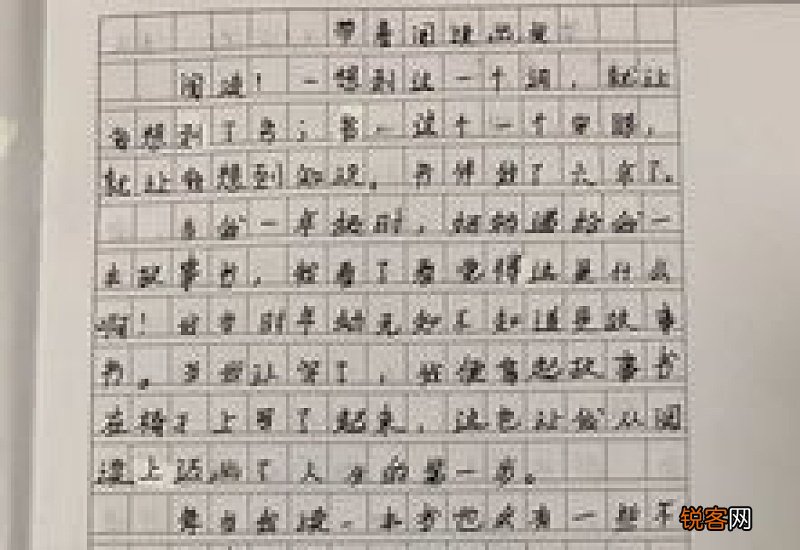 带着阅读出发
阅读！一想到这一个词，就让
我想到了书；书，这个一个
就让我想到知识。书伴我了六年了。
当我一年级时，妈妈递给我一
本故事书，我看了看觉得这是什么
啊！我当时年幼无知不知道是故事
书。我便拿起故事书
在椅子上看了起来，这也让我从阅
读上迈出了人生的第一步。
每当我读一本书也会有一些不
锐客网